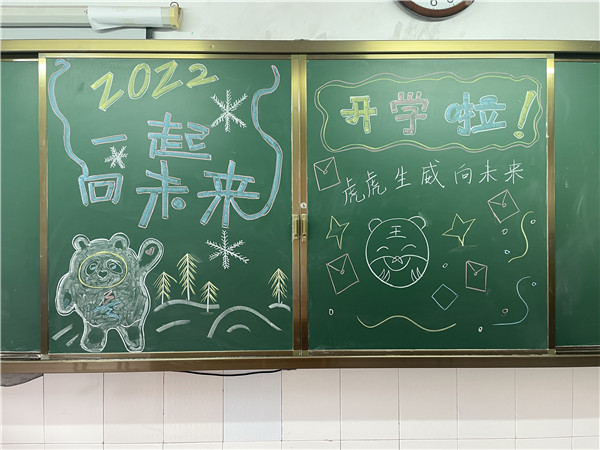 2022
一起
向未来
开学啦！
虎虎生威向未来
王